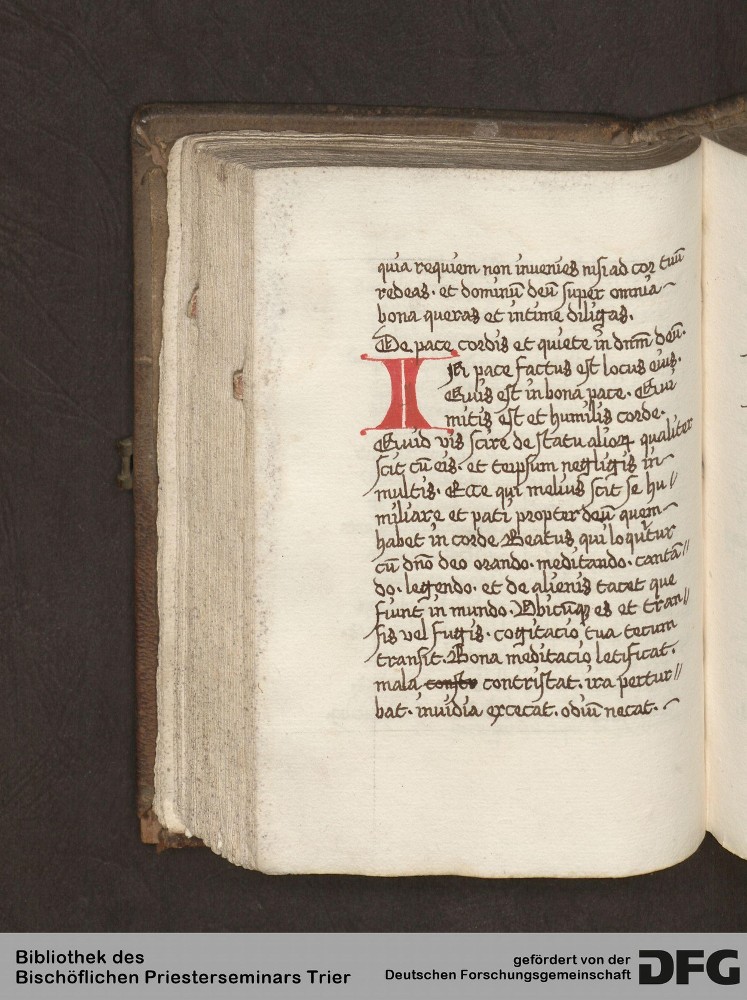 quia requiem non invenies nisi ad cor tuū
redeas. et dominū deū super omnia
bona queras et intime diligas.
De pace cordis et quiete in dnm̄ deū.
IN pace factus est locus eius.
Quis est in bona pace. Qui
mitis est et humilis corde.
Quid vis scire de statu alioꝝ qualiter
scit cū eis. et teipsum negligis in
multis. Ecce qui melius scit se hu//
miliare et pati propter deū quem
habet in corde. Beatus qui loquitur
cū dn̄o deo orando. meditando. cantā//
do. legendo. et de alienis tacet que
fiunt in mundo. Ubicūqꝫ es et tran//
sis vel fugis. cogitacio tua tecum
transit. Bona meditacio letificat.
mala constr contristat. ira pertur//
bat. invidia excecat. odiū necat.
Bibliothek des
Bischöflichen Priesterseminars Trier
gefördert von der
Deutschen Forschungsgemeinschaft
DFG